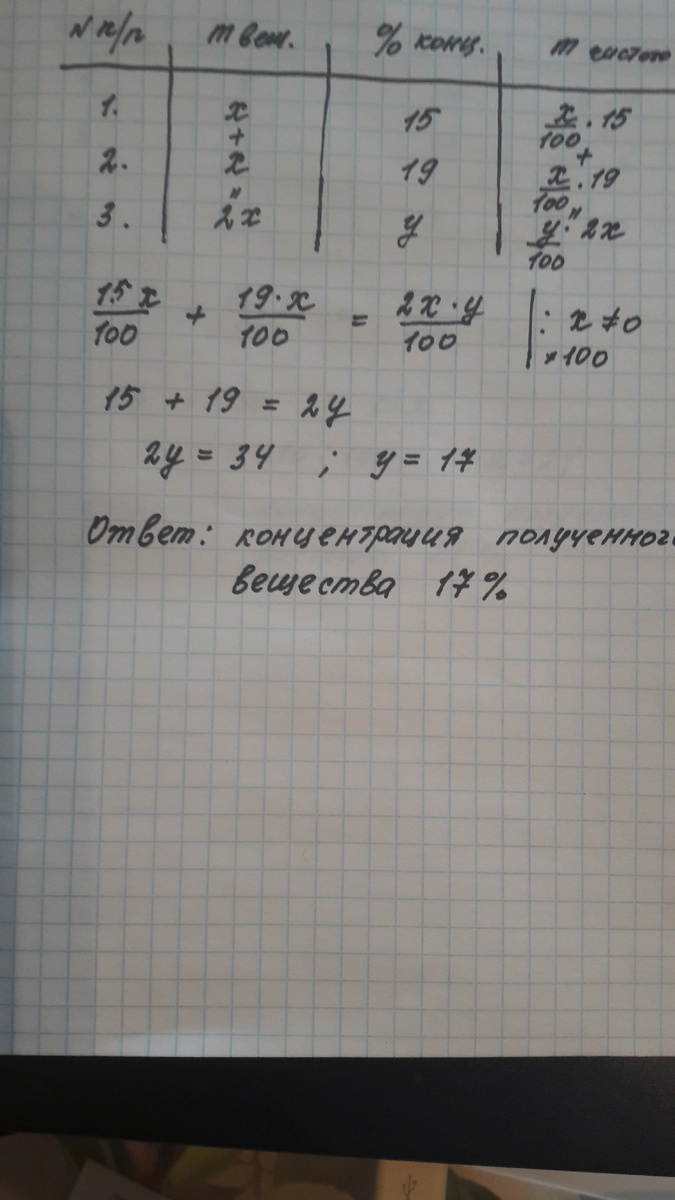 N п/п m вещ. % конц. m чистого
1. x 15 x/100 · 15
+ +
2. x 19 x/100 · 19
" "
3. 2x y y/100 · 2x
15x/100 + 19·x/100 = 2x·y/100 | : x ≠ 0
×100
15 + 19 = 2y
2y = 34 ; y = 17
Ответ: концентрация полученног
вещества 17%.